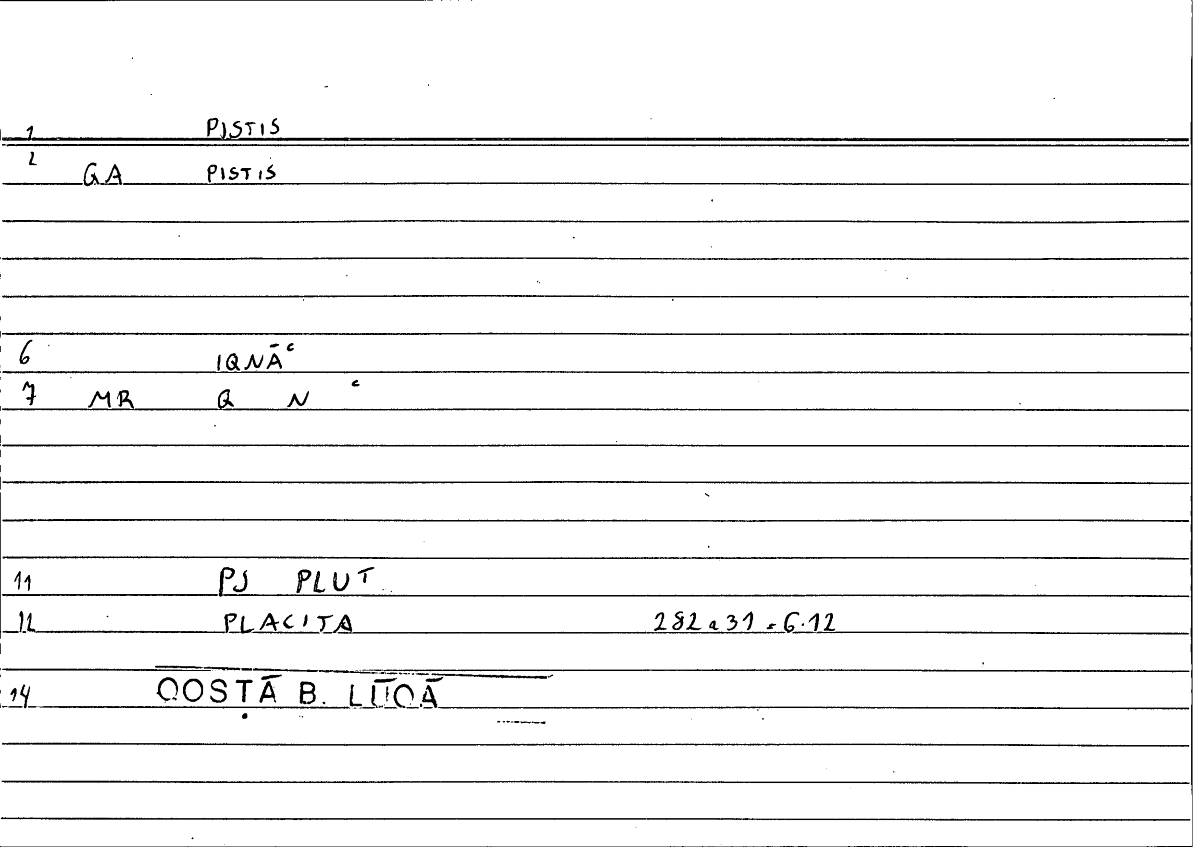 1 PISTIS
2 GA PISTIS
6 IQNĀʿ
7 MR Q N ʿ
11 PJ PLUT
12 PLACITA 282 a 31 = 6.12
14 QOSṬĀ B. LŪQĀ